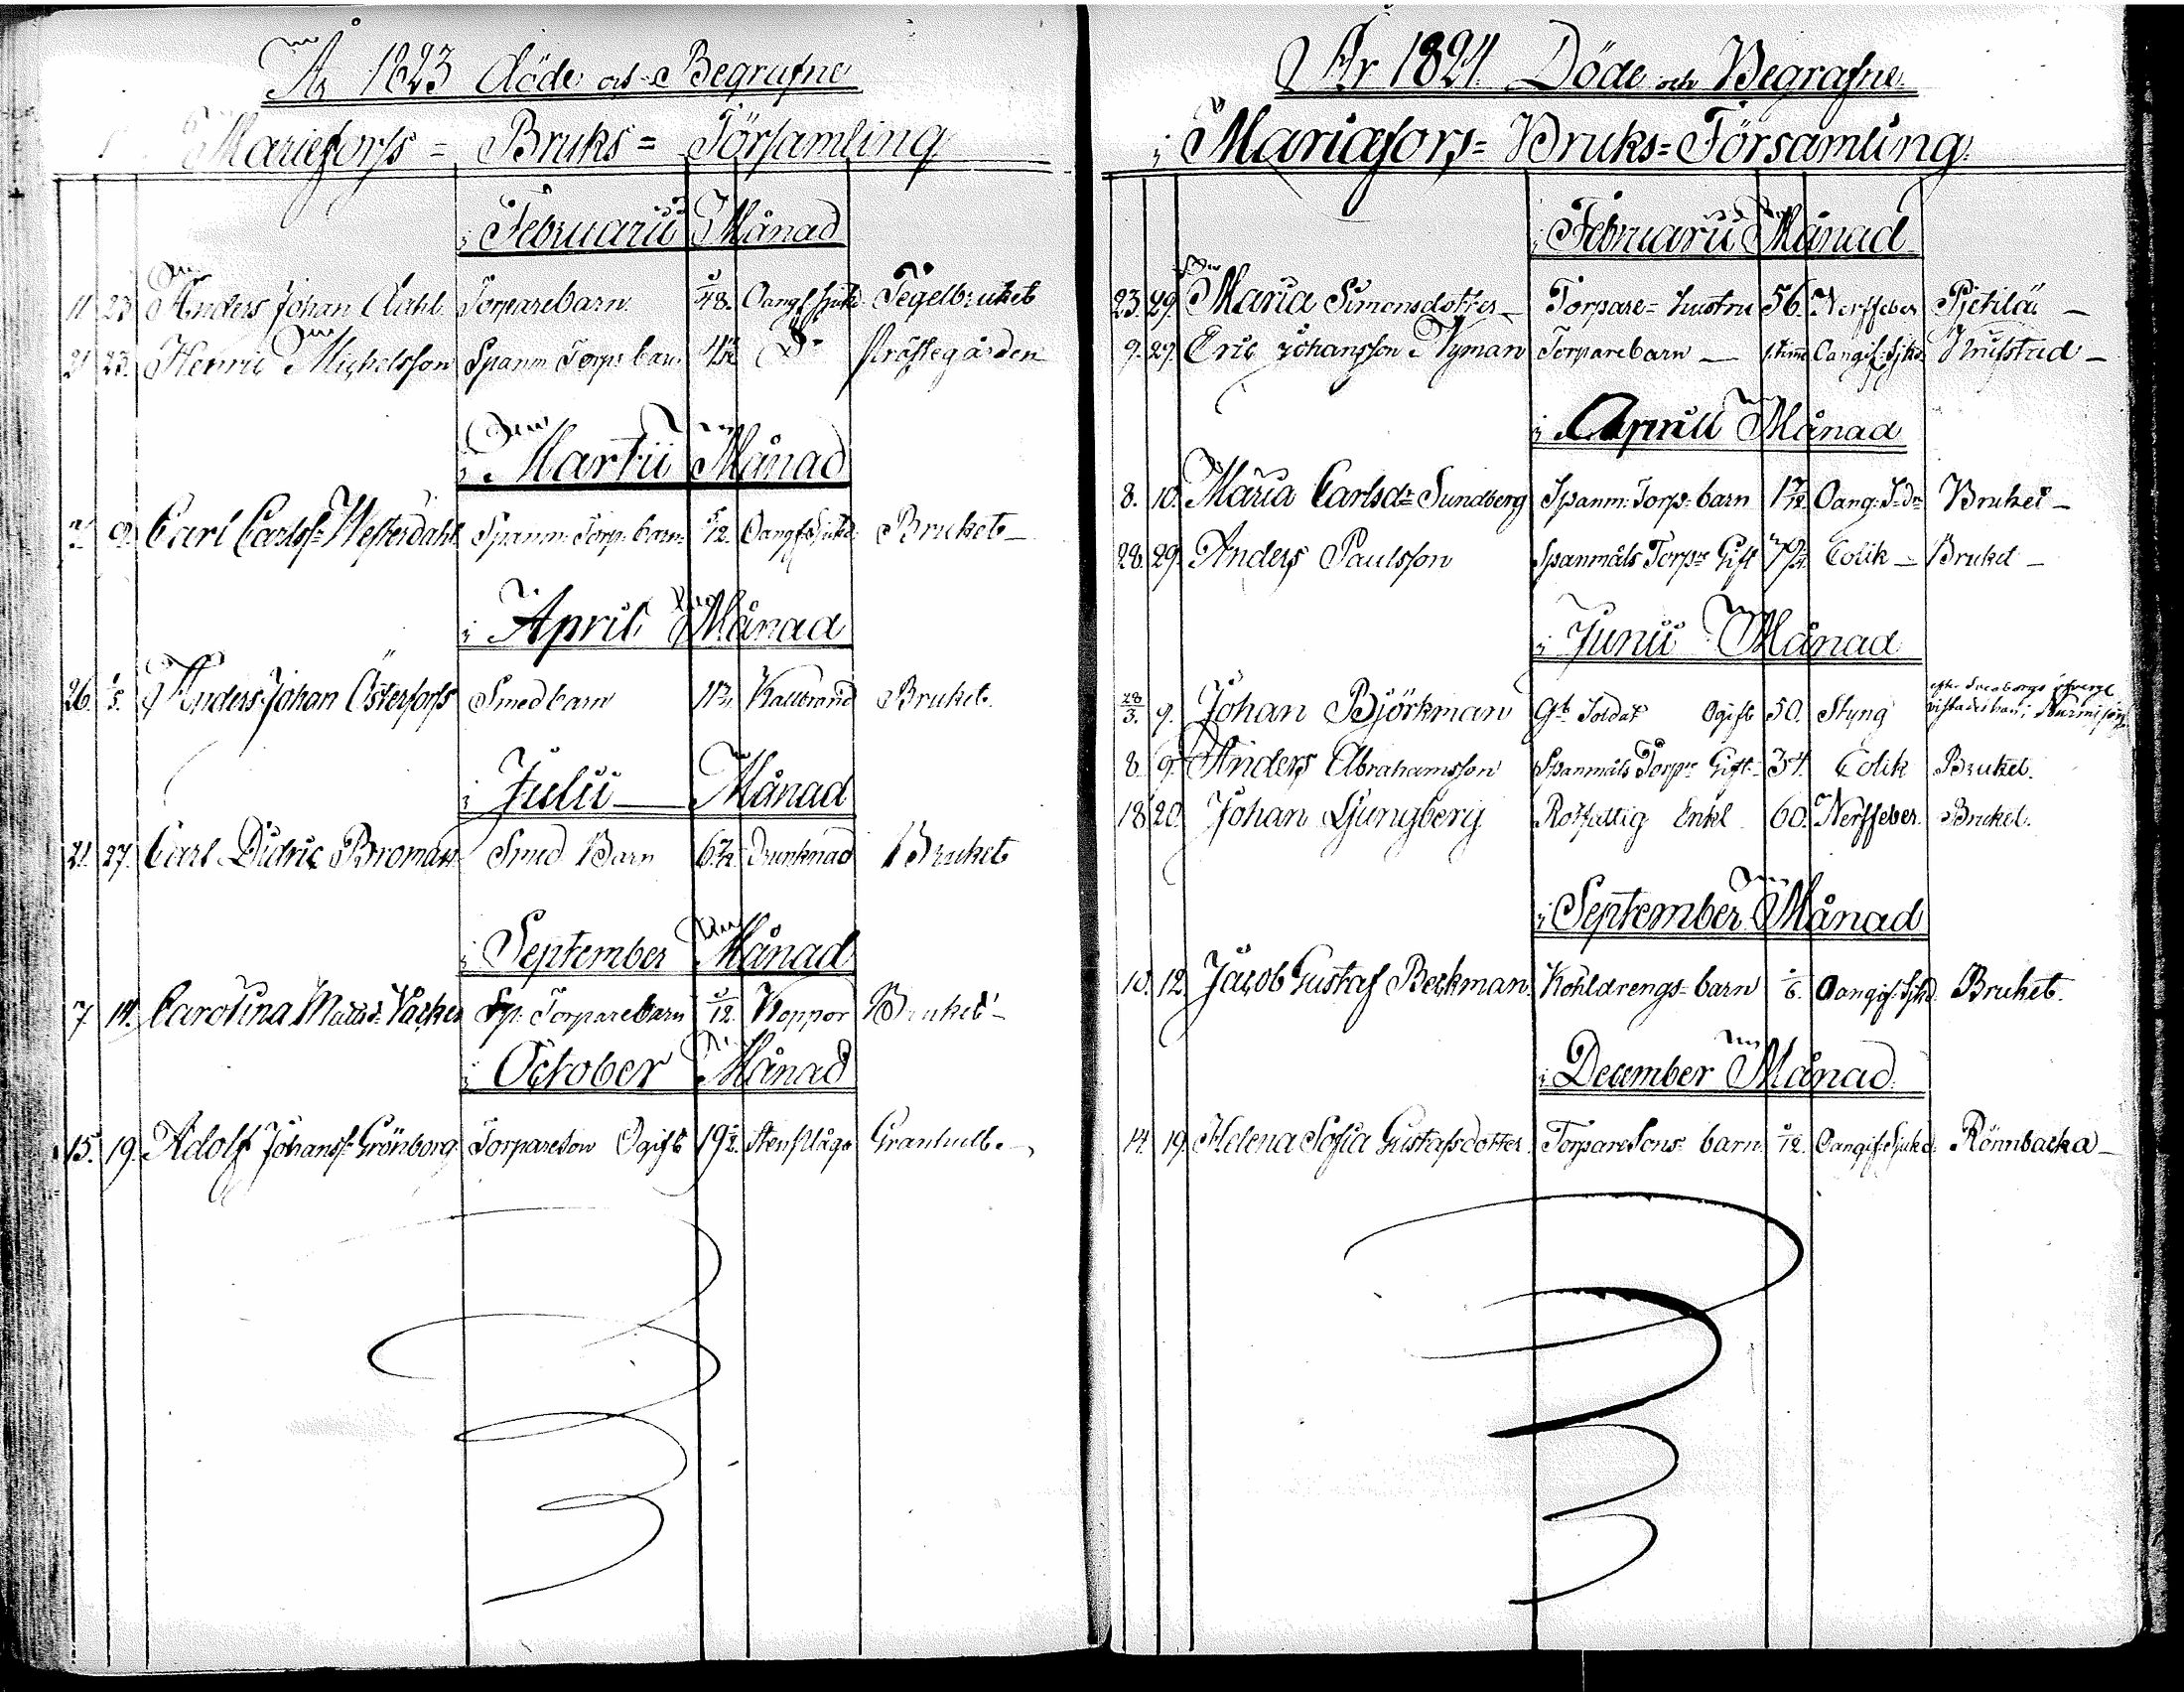 År 1823 döde och Begrafne
Mariefors = Bruks = Församling
i Februarii Månad
11 23 Anders Johan Dahl Torparebarn Oangif. Sjukd. Tegelbruket
21 23. Henric Michelsson Spanm. Torp. barn Do Prästegården
i Martii Månad
2 9 Carl Carlss: Westerdahl Spanm: Torp: barn 5/12. Oangif. Sjukd. Bruket
i April Månad
26. Anders Johan Österforss Smed barn Kallbrand Bruket.
i Julii Månad
21. 27. Carl Didric Broman Smed Barn Drunknad Bruket
i September Månad
7. 14. Carolina Sp: Torparebarn Koppor Bruket
i October Månad
15. 19. Adolf Johanss: Grönborg Torpareson Ogift Granhult.
År 1824. Döde och Begrafne
i Mariæfors = Bruks = Församling.
i Februarii Månad
23. 29. Maria Simonsdotter Torpare = hustru 56. Nerffeber Pietilä
9. 29. Eric Johansson Nyman Torparebarn 1 timme Oangif: Sjkd.
i Aprill Månad
8. 10. Maria Carlsdr Sundberg Spanm: Torp: barn Oang: S:d. Bruket
28. 29. Anders Paulsson Spanmåls Torpr Gift Colik Bruket
i Junii Månad
28/3. 9. Johan Björkman Gl. Soldat Ogift 50. Styng
8 9. Anders Abrahamsson Spanmåls Torpr Gift 34. Colik Bruket.
18 20. Johan Ljungberg Rotfattig Enkl. 60. Nerffeber. Bruket.
i September Månad
10. 12. Jacob Gustaf Beckman Kohldrengs = barn Oangif: Sjkd. Bruket.
i December Månad.
14. 19. Helena Sofia Gustafsdotter Torparesons barn Oangif: Sjukd. Rönnbacka